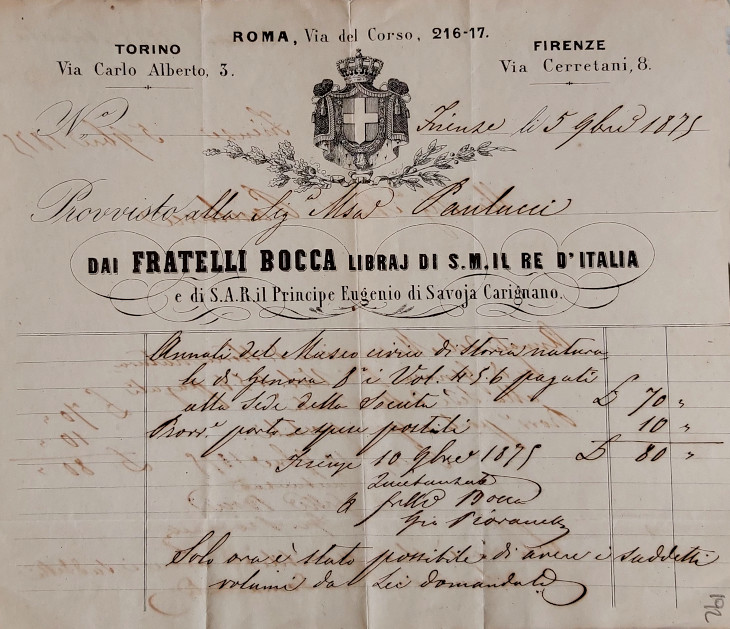 ROMA, Via del Corso, 216-17.
TORINO
Via Carlo Alberto, 3.
FIRENZE
Via Cerretani, 8.
N.º
Firenze li 5 9bre 1875
Provvisto alla Sigª Msa Paulucci
DAI FRATELLI BOCCA LIBRAJ DI S.M. IL RE D'ITALIA
e di S.A.R. il Principe Eugenio di Savoja Carignano.
Annali del Museo civico di Storia natura-
le di Genova 8º i Vol. 4 5 6 pagati
alla Sede della Società £ 70 "
Provv.e porto e spese postali 10 "
Firenze 10 9bre 1875 £ 80 "
Quietanzato
p frlli Bocca
Gio
Solo ora è stato possibile di avere i suddetti
volumi da Lei domandati
192